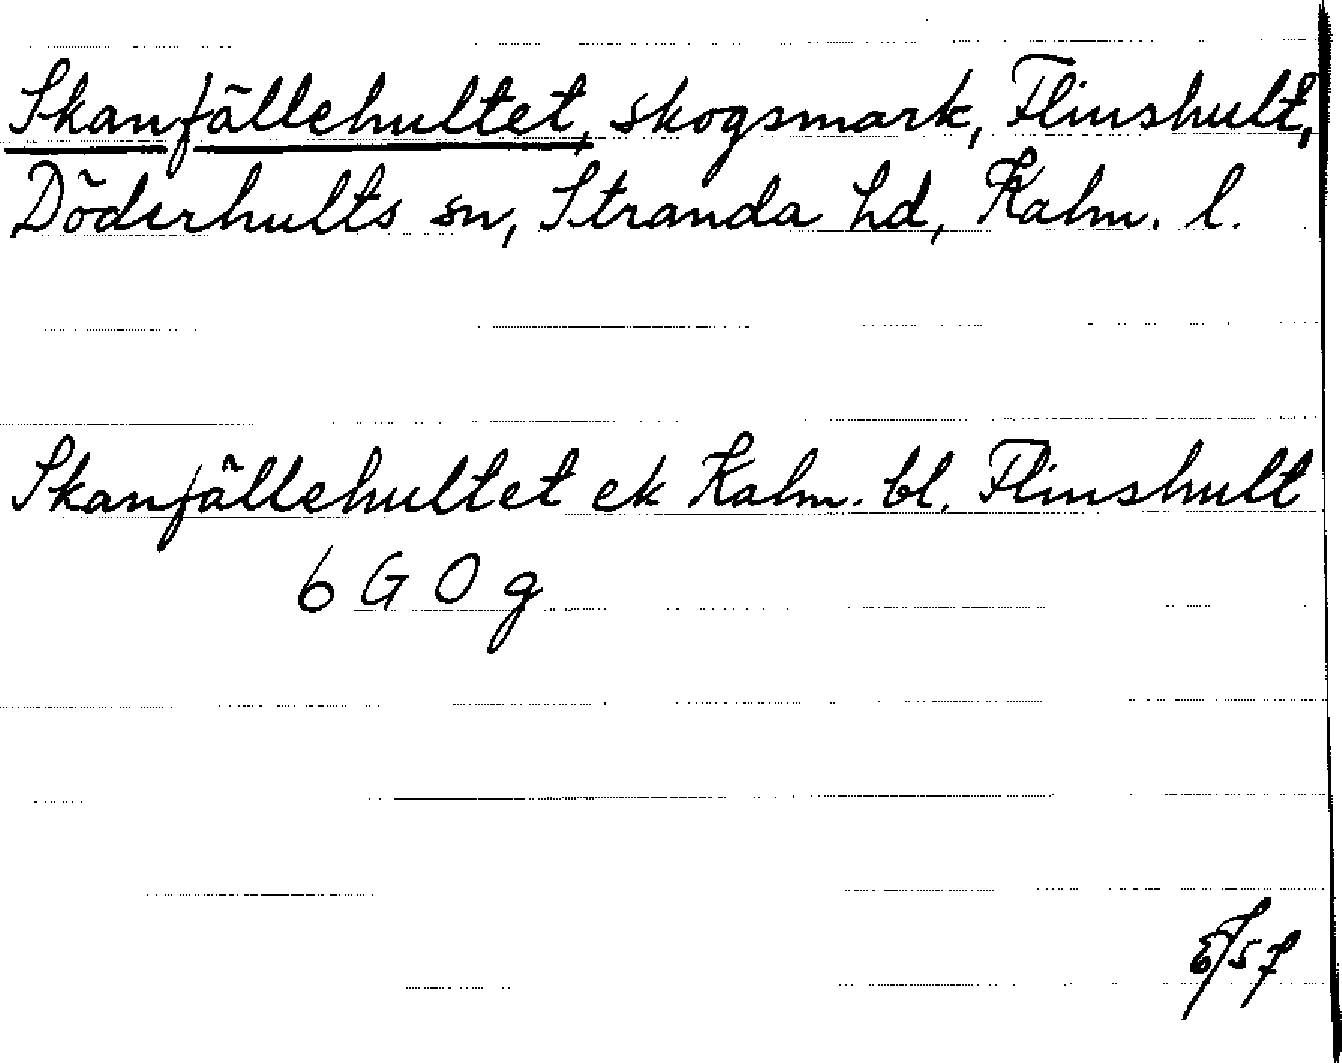 Skanfällehultet, skogsmark, Flinshult,
Döderhults sn, Stranda hd, Kalm. l.
Skanfällehultet ek Kalm. bl. Flinshult
6 G 0 g